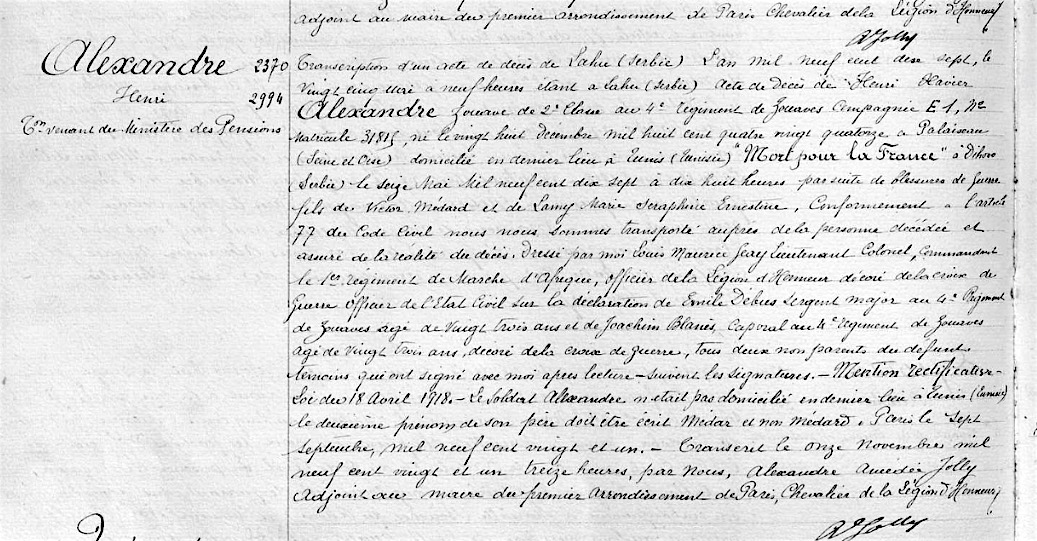 adjoint au maire du premier arrondissement de Paris Chevalier de la Légion d'Honneur
AJolly
Alexandre 2370
Henri 2994
Ton venant du Ministère des Pensions
Transcription d'un acte de décès de Sahu (Serbie) L'an mil neuf cent dix sept, le
vingt cinq mai à neuf heures étant à Sahu (Serbie) Acte de Décès de Henri Xavier
Alexandre Zouave de 2e Classe au 4e régiment de Zouaves Compagnie E 1, No
matricule 31815, né le vingt huit Decembre mil huit cent quatre vingt quatorze à Palaiseau
(Seine et Oise) domicilié en dernier lieu à Tunis (Tunisie) "Mort pour la France" à Dihovo
(Serbie) le seize Mai Mil neuf cent dix sept à dix huit heures par suite de blessures de Guerre
fils de Victor Médard et de Lamy Marie Seraphine Ernestine, Conformement a l'article
77 du Code Civil nous nous sommes transporté auprès de la personne décédée et
assuré de la réalité du décès. Dressé par moi Louis Maurice Geay Lieutenant Colonel, Commandant
le 1er régiment de Marche d'Afrique, officier de la Légion d'Honneur décoré de la croix de
Guerre Officier de l'Etat Civil sur la déclaration de Emile Debus Sergent major au 4e Régiment
de Zouaves agé de vingt trois ans et de Joachim Blanès, Caporal au 4e régiment de Zouaves
agé de vingt trois ans, décoré de la croix de guerre, tous deux non parents du defunt
temoins qui ont signé avec moi apres lecture - suivent les signatures. - Mention rectificative -
Loi du 18 Avril 1918. - Le Soldat Alexandre n'était pas domicilié en dernier lieu à Tunis (Tunisie)
le deuxième prénom de son père doit être écrit Médar et non Médard. Paris le sept
septembre, mil neuf cent vingt et un. - Transcrit le onze Novembre mil
neuf cent vingt et un treize heures, par nous, Alexandre Amedée Jolly
Adjoint au maire du premier arrondissement de Paris, Chevalier de la Légion d'Honneur
AJolly